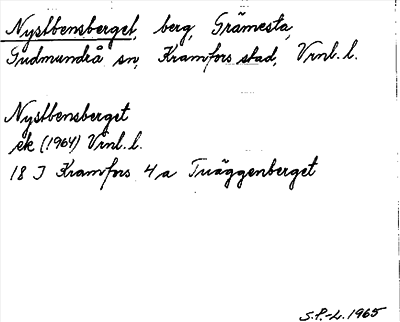 Nystbensberget, berg, Grämesta,
Gudmundrå sn, Kramfors stad, Vrnl. l.
Nystbensberget
ek (1964) Vrnl. l.
18 I Kramfors 4 a Tväggenberget
S.P.-L. 1965